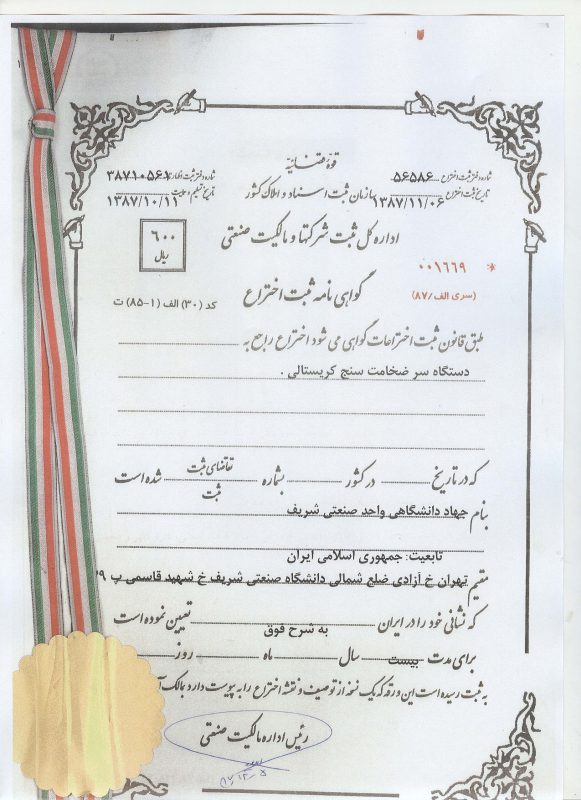 قوهٔ قضائیه
شماره دفتر ثبت اختراع ۵۶۵۸۶
شماره دفتر ثبت اظهارنامه ۳۸۷۱۰۵۶۲
تاریخ ثبت اختراع ۱۳۸۷/۱۱/۰۶
سازمان ثبت اسناد و املاک کشور
تاریخ تسلیم ۱۳۸۷/۱۰/۱۱
اداره کل ثبت شرکتها و مالکیت صنعتی
۶۰۰
ریال
* ۰۰۱۶۶۹
(سری الف/۸۷)
گواهی نامه ثبت اختراع
کد (۳۰) الف (۱-۸۵) ت
طبق قانون ثبت اختراعات گواهی می شود اختراع راجع به
دستگاه سر ضخامت سنج کریستالی .
که در تاریخ در کشور بشماره تقاضای ثبت شده است
ثبت
بنام جهاد دانشگاهی واحد صنعتی شریف
تابعیت: جمهوری اسلامی ایران
مقیم تهران خ آزادی ضلع شمالی دانشگاه صنعتی شریف خ شهید قاسمی پ
که نشانی خود را در ایران به شرح فوق تعیین نموده است
برای مدت بیست سال ماه روز
به ثبت رسیده است این ورقه که یک نسخه از توصیف و نقشه اختراع را به پیوست دارد بمالک
رئیس اداره مالکیت صنعتی